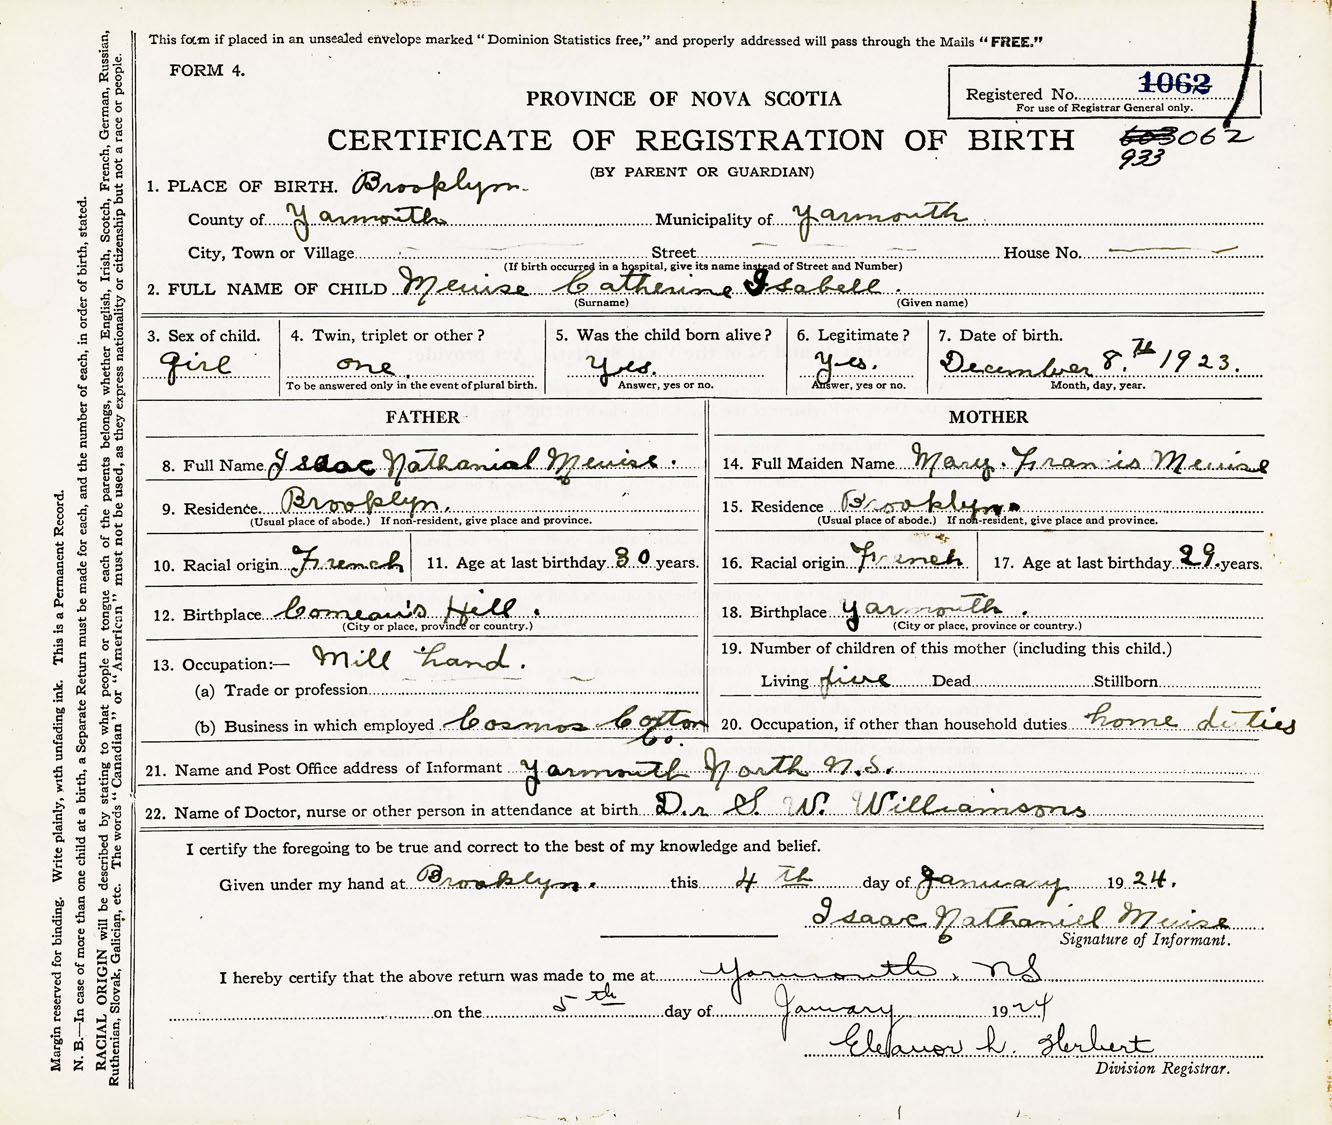 This form if placed in an unsealed envelope marked "Dominion Statistics free," and properly addressed will pass through the Mails "FREE."
FORM 4.
Registered No. 1062
For use of Registrar General only.
PROVINCE OF NOVA SCOTIA
CERTIFICATE OF REGISTRATION OF BIRTH
603062
933
(BY PARENT OR GUARDIAN)
1. PLACE OF BIRTH. Brooklyn.
County of Yarmouth Municipality of Yarmouth
City, Town or Village Street House No.
(If birth occurred in a hospital, give its name instead of Street and Number)
2. FULL NAME OF CHILD Meuise Catherine Isabell.
(Surname) (Given name)
3. Sex of child. 4. Twin, triplet or other? 5. Was the child born alive? 6. Legitimate? 7. Date of birth.
girl one. Yes. Yes. December 8.th 1923.
To be answered only in the event of plural birth. Answer, yes or no. Answer, yes or no. Month, day, year.
FATHER MOTHER
8. Full Name Isaac Nathanial Meuise. 14. Full Maiden Name Mary. Francis Meuise
9. Residence. Brooklyn. 15. Residence Brooklyn.
(Usual place of abode.) If non-resident, give place and province. (Usual place of abode.) If non-resident, give place and province.
10. Racial origin French 11. Age at last birthday 30 years. 16. Racial origin French 17. Age at last birthday 29. years.
12. Birthplace Comeau's Hill. 18. Birthplace Yarmouth.
(City or place, province or country.) (City or place, province or country.)
13. Occupation:— Mill hand. 19. Number of children of this mother (including this child.)
(a) Trade or profession Living five Dead Stillborn
(b) Business in which employed Cosmos Cotton Co. 20. Occupation, if other than household duties home duties
21. Name and Post Office address of Informant Yarmouth North N.S.
22. Name of Doctor, nurse or other person in attendance at birth Dr S. W. Williamsons
I certify the foregoing to be true and correct to the best of my knowledge and belief.
Given under my hand at Brooklyn. this 4th day of January 1924.
Isaac Nathaniel Meuise
Signature of Informant.
I hereby certify that the above return was made to me at Yarmouth, NS
on the 5th day of January 1924
Eleanor L. Herbert
Division Registrar.
Margin reserved for binding. Write plainly, with unfading ink. This is a Permanent Record.
N. B.—In case of more than one child at a birth, a Separate Return must be made for each, and the number of each, in order of birth, stated.
RACIAL ORIGIN will be described by stating to what people or tongue each of the parents belongs, whether English, Irish, Scotch, French, German, Russian,
Ruthenian, Slovak, Galician, etc. The words "Canadian" or "American" must not be used, as they express nationality or citizenship but not a race or people.